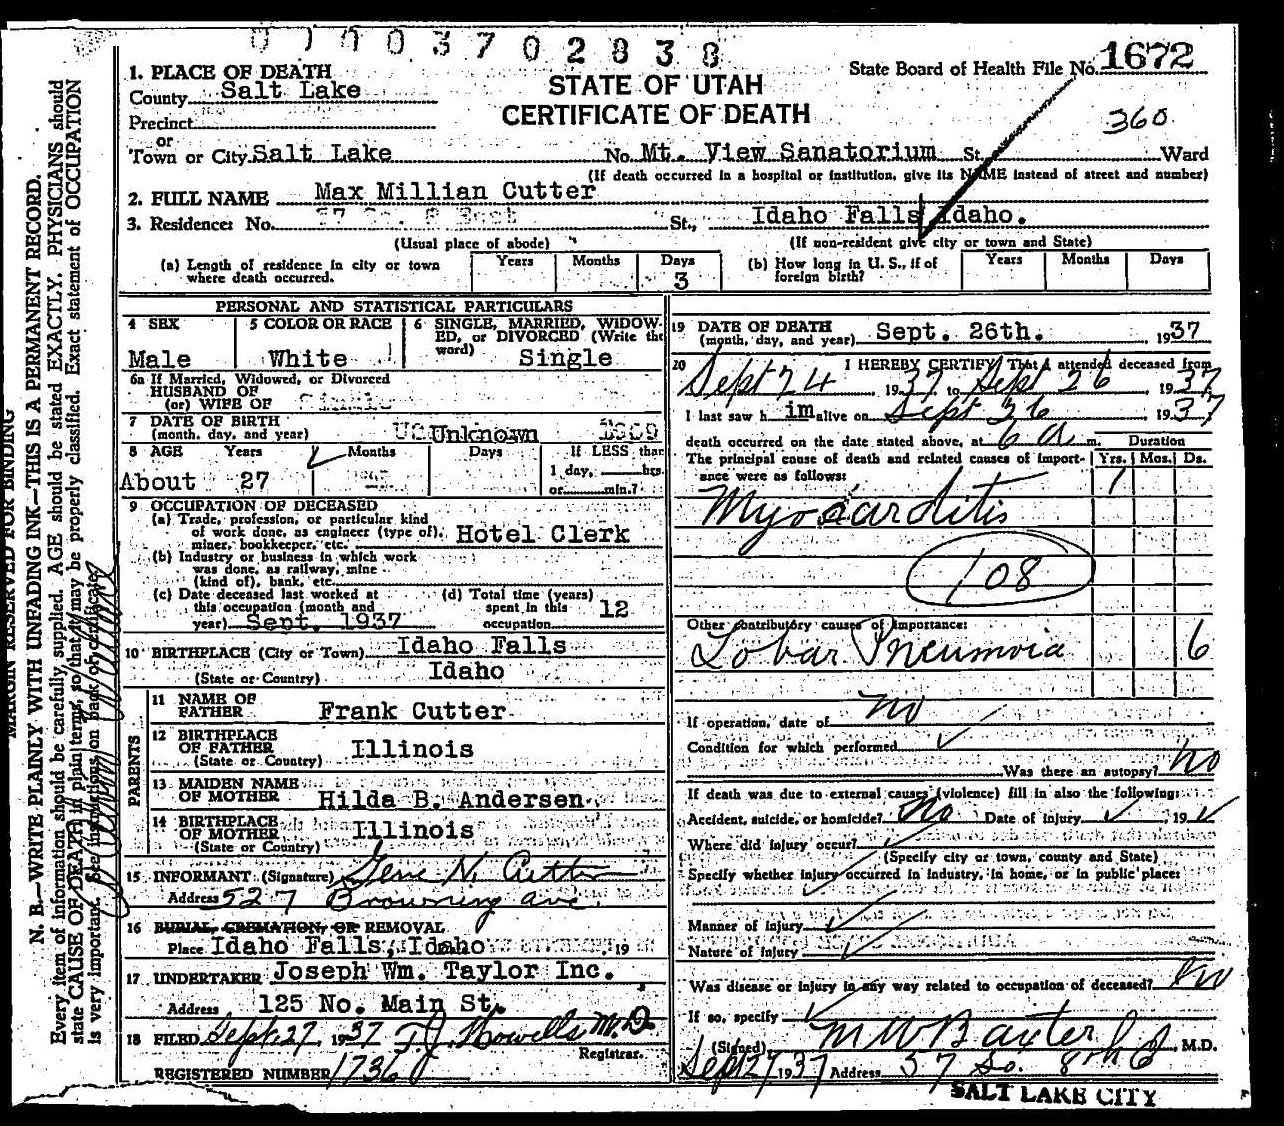 0 1 0 0 3 7 0 2 8 3 8
1. PLACE OF DEATH
County Salt Lake
Precinct
or
Town or City Salt Lake
STATE OF UTAH
CERTIFICATE OF DEATH
State Board of Health File No. 1672
360
No. Mt. View Sanatorium St. Ward
(If death occurred in a hospital or institution, give its NAME instead of street and number)
2. FULL NAME Max Millian Cutter
3. Residence: No. St., Idaho Falls Idaho.
(Usual place of abode) (If non-resident give city or town and State)
(a) Length of residence in city or town where death occurred. Years Months Days 3
(b) How long in U. S., if of foreign birth? Years Months Days
PERSONAL AND STATISTICAL PARTICULARS
4 SEX Male
5 COLOR OR RACE White
6 SINGLE, MARRIED, WIDOWED, or DIVORCED (Write the word) Single
6a If Married, Widowed, or Divorced
HUSBAND OF
(or) WIFE OF
7 DATE OF BIRTH
(month, day, and year) Unknown
8 AGE Years Months Days If LESS than
1 day, hrs.
or min.?
About 27
9 OCCUPATION OF DECEASED
(a) Trade, profession, or particular kind
of work done, as engineer (type of),
miner, bookkeeper, etc. Hotel Clerk
(b) Industry or business in which work
was done, as railway, mine
(kind of), bank, etc.
(c) Date deceased last worked at
this occupation (month and
year) Sept. 1937
(d) Total time (years)
spent in this
occupation 12
10 BIRTHPLACE (City or Town) Idaho Falls
(State or Country) Idaho
PARENTS
11 NAME OF
FATHER Frank Cutter
12 BIRTHPLACE
OF FATHER Illinois
(State or Country)
13 MAIDEN NAME
OF MOTHER Hilda B. Andersen
14 BIRTHPLACE
OF MOTHER Illinois
(State or Country)
15 INFORMANT (Signature) Gene N. Cutter
Address 527 Browning ave.
16 BURIAL, CREMATION, OR REMOVAL
Place Idaho Falls, Idaho 19
17 UNDERTAKER Joseph Wm. Taylor Inc.
Address 125 No. Main St.
18 FILED Sept. 27, 1937 F. J. Howells M.D.
Registrar.
REGISTERED NUMBER 1736
19 DATE OF DEATH
(month, day, and year) Sept. 26th. 1937
20 I HEREBY CERTIFY That I attended deceased from
Sept 24 1937, to Sept 26 1937
I last saw h im alive on Sept 26 1937
death occurred on the date stated above, at 6 a m.
Duration
The principal cause of death and related causes of importance were as follows: Yrs. Mos. Ds.
Myocarditis 1
108
Other contributory causes of importance:
Lobar Pneumonia 6
If operation, date of no
Condition for which performed
Was there an autopsy? no
If death was due to external causes (violence) fill in also the following:
Accident, suicide, or homicide? no Date of injury 19
Where did injury occur?
(Specify city or town, county and State)
Specify whether injury occurred in industry, in home, or in public place:
Manner of injury
Nature of injury
Was disease or injury in any way related to occupation of deceased? no
If so, specify
(Signed) M W Baxter, M.D.
Sept 27 1937 Address 37 So. 8th E
SALT LAKE CITY
MARGIN RESERVED FOR BINDING
N. B.—WRITE PLAINLY WITH UNFADING INK—THIS IS A PERMANENT RECORD.
Every item of information should be carefully supplied. AGE should be stated EXACTLY. PHYSICIANS should
state CAUSE OF DEATH in plain terms, so that it may be properly classified. Exact statement of OCCUPATION
is very important. See instructions on back of certificate.